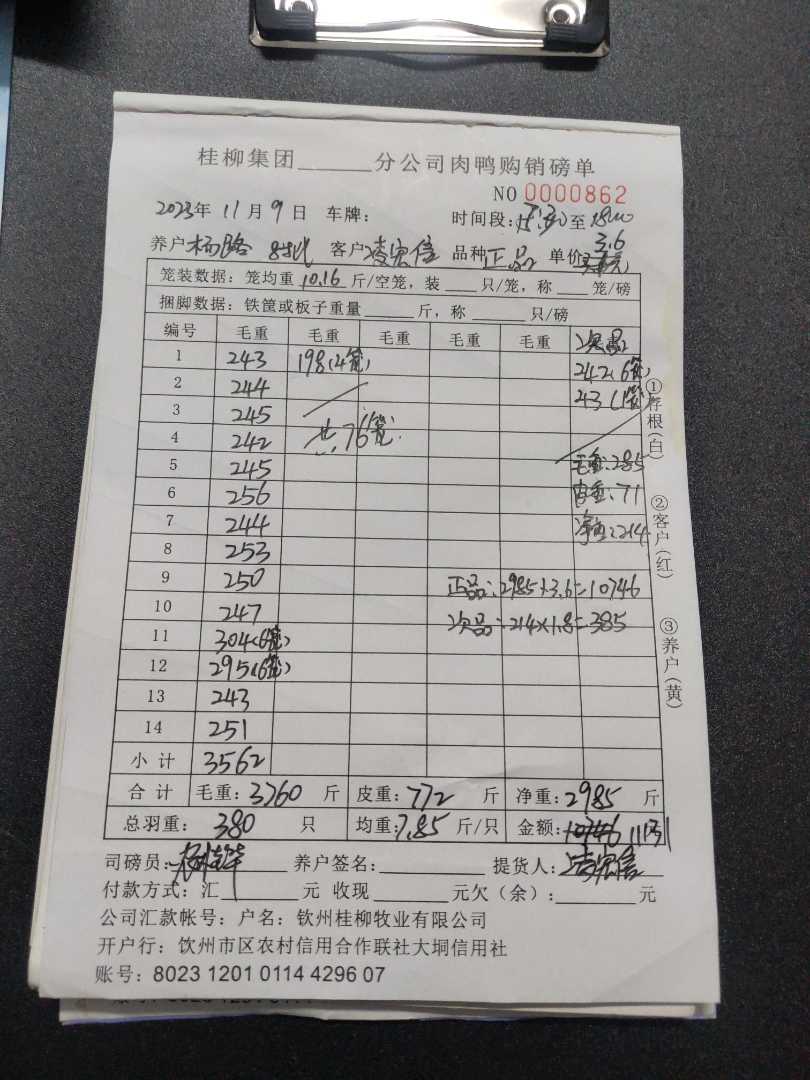 桂柳集团______分公司肉鸭购销磅单
NO 0000862
2023年 11月 9日 车牌: 时间段:15:30至18:00
养户杨路 8批 客户凌宏信 品种正品 单价3.6
笼装数据:笼均重10.16斤/空笼,装___只/笼,称___笼/磅
捆脚数据:铁筐或板子重量_____斤,称_____只/磅
编号 毛重 毛重 毛重 毛重 毛重 次品
1 243 198(4笼) 242(6笼)
2 244 43(1笼)
3 245
4 242 共76笼
5 245 毛重:285
6 256 皮重:71
7 244 净重:214
8 253
9 250 正品:2985×3.6=10746
10 247 次品:214×1.8=385
11 304(6笼)
12 295(6笼)
13 243
14 251
小计 3562
合计 毛重:3760 斤 皮重:772 斤 净重:2985 斤
总羽重: 380 只 均重:7.85斤/只 金额:10746 11131
司磅员: 养户签名: 提货人:凌宏信
付款方式:汇______元 收现______元欠(余):______元
公司汇款帐号:户名:钦州桂柳牧业有限公司
开户行:饮州市区农村信用合作联社大垌信用社
账号:8023 1201 0114 4296 07
①存根(白)
②客户(红)
③养户(黄)